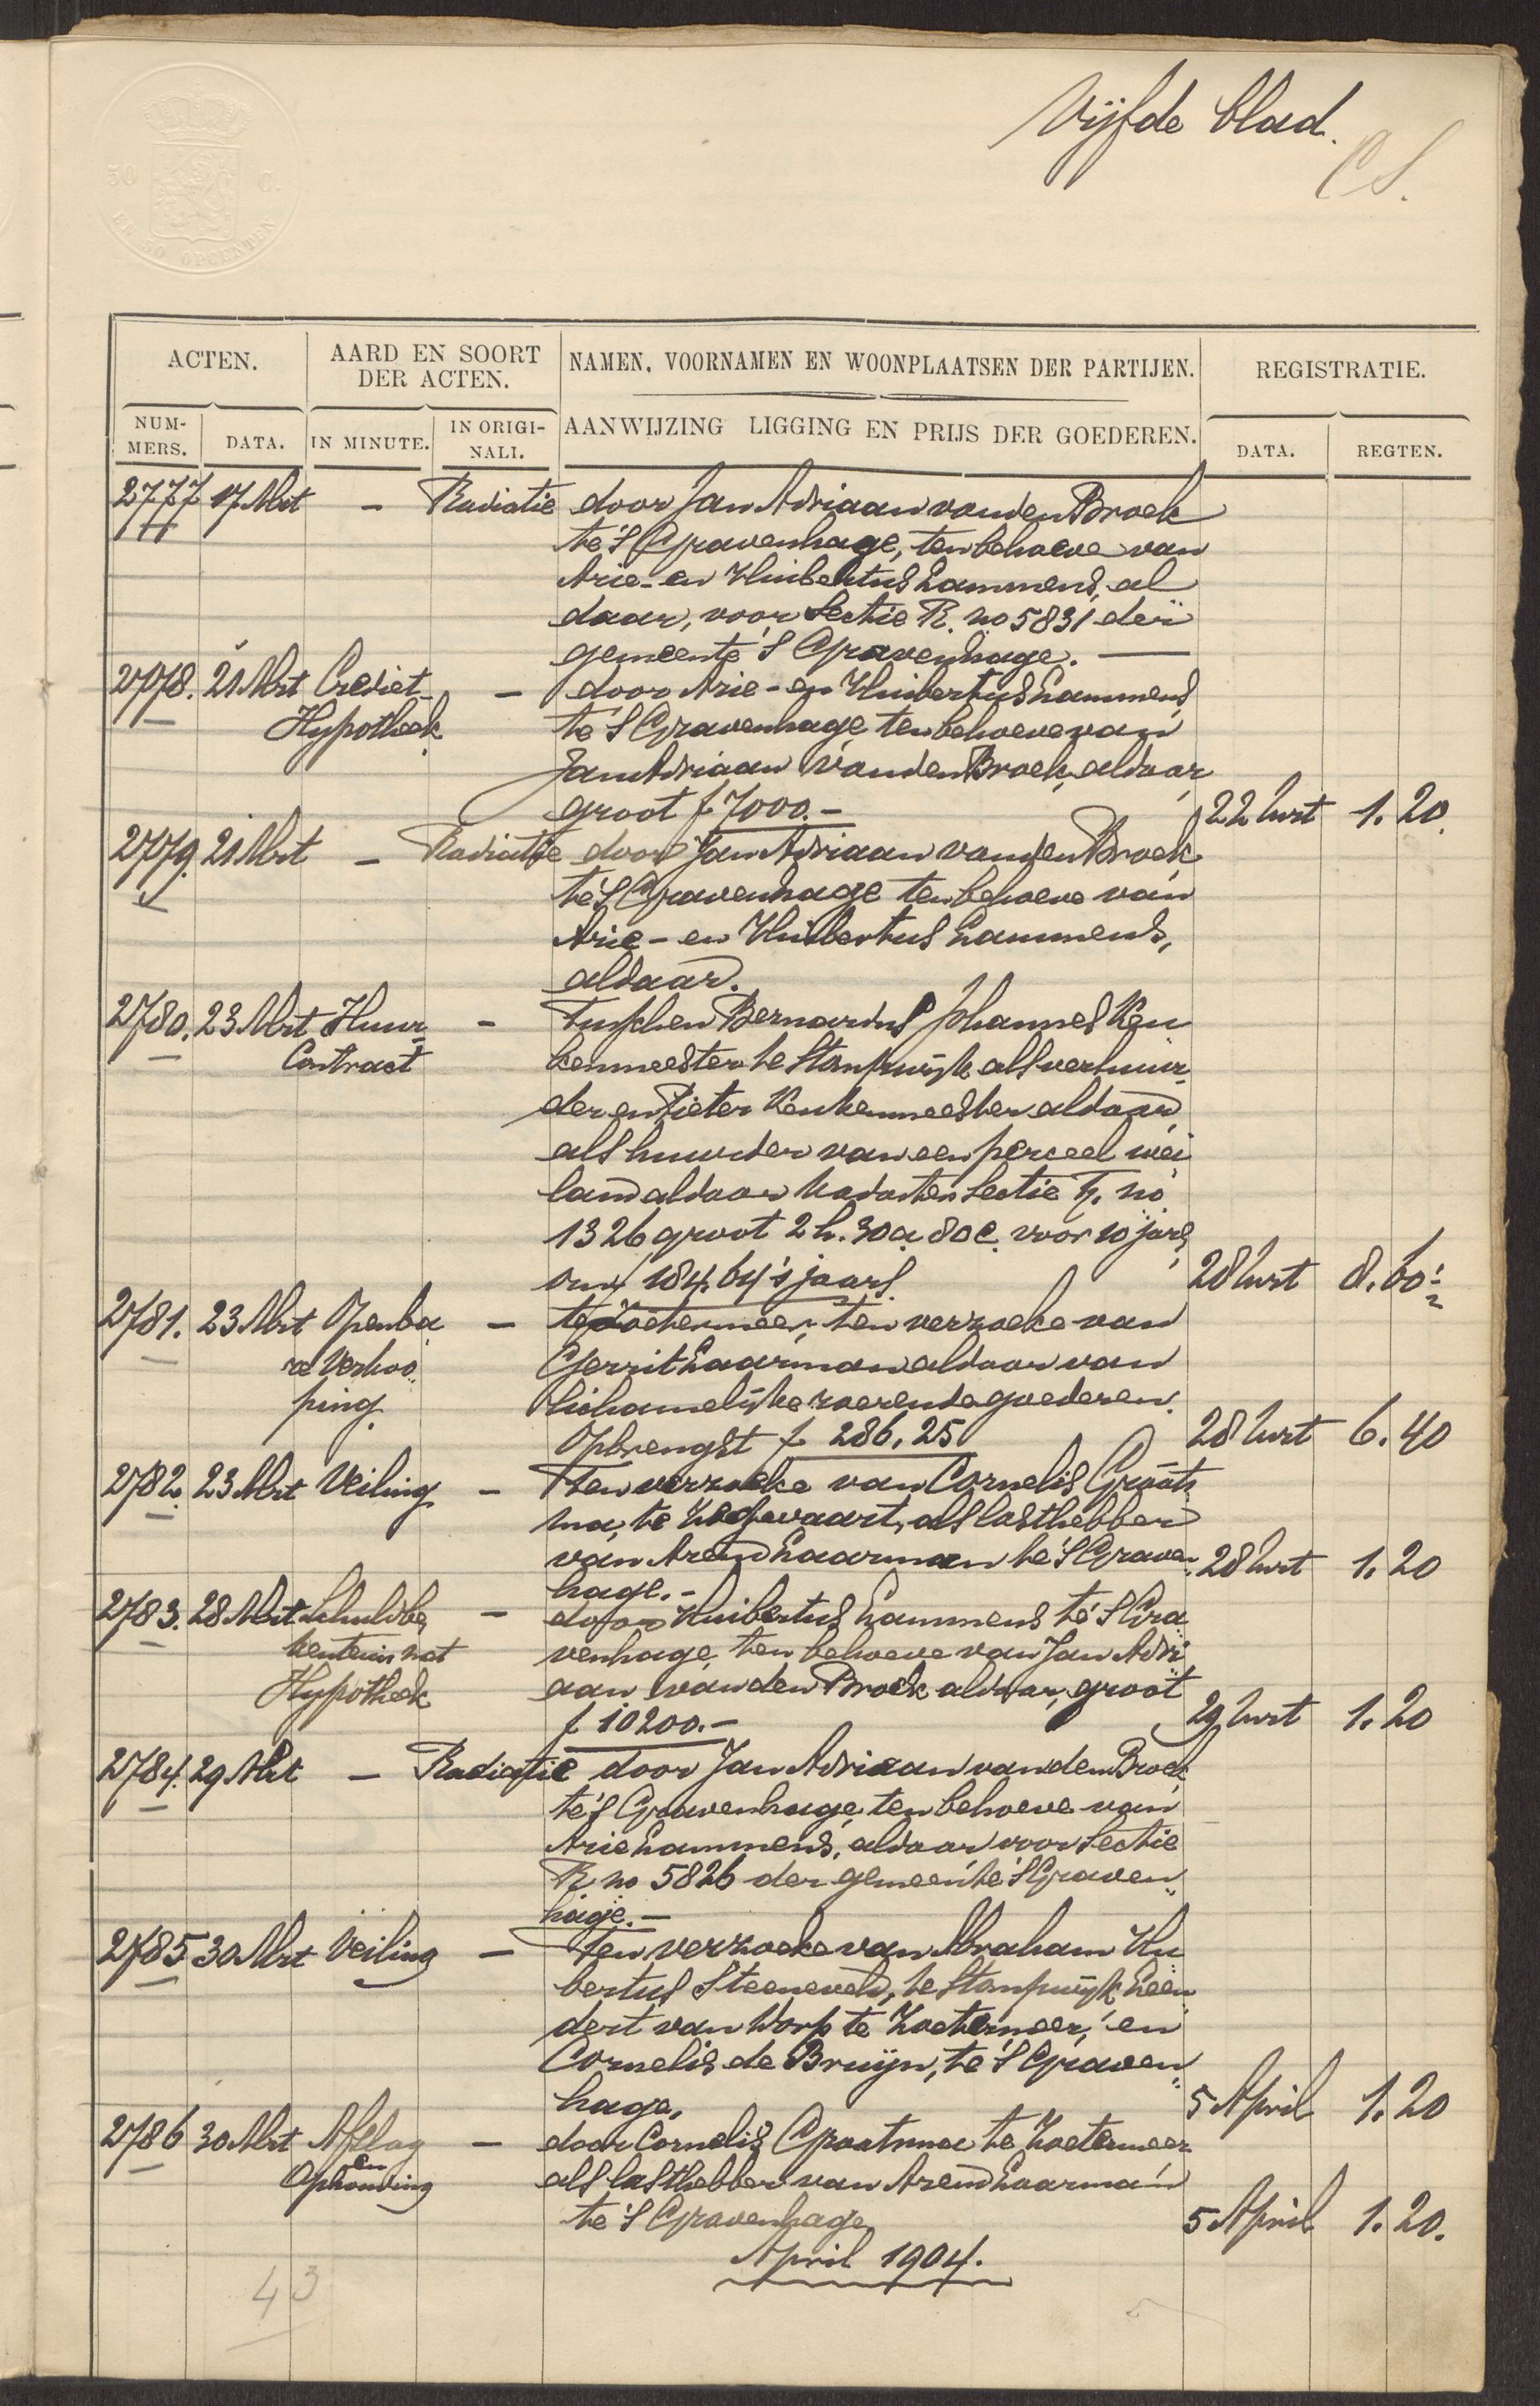 Vijfde blad.
CS.
50 C.
EN 50 OPCENTEN
ACTEN.
AARD EN SOORT
DER ACTEN.
NAMEN, VOORNAMEN EN WOONPLAATSEN DER PARTIJEN.
REGISTRATIE.
NUM-
MERS.
DATA.
IN MINUTE.
IN ORIGI-
NALI.
AANWIJZING LIGGING EN PRIJS DER GOEDEREN.
DATA.
REGTEN.
2777 17 Mrt - Radiatie door Jan Adriaan van den Broek
te 'S Gravenhage, ten behoeve van
Arie- en Huibertus Lammens, al
daar, voor Sectie R. no 5831 der
gemeente 'S Gravenhage. -
2778. 21 Mrt Crediet- - door Arie- en Huibertus Lammens
Hypotheek te 'S Gravenhage ten behoeve van
Jan Adriaan van den Broek, aldaar,
groot f 7000.- 22 Mrt 1.20.
2779. 21 Mrt - Radiatie door Jan Adriaan van den Broek
te 'S Gravenhage ten behoeve van
Arie- en Huibertus Lammens,
aldaar.
2780. 23 Mrt Huur - Tusschen Bernardus Johannes Keu
Contract kenmeester te Stompwijk als verhuur-
der en Pieter Keukenmeester aldaar
als huurder van een perceel wei
land aldaar Kadaster Sectie F. no
1326 groot 2 h. 30 a. 80 c. voor 10 jare
om f 184.64 's jaars. 28 Mrt 8.60
2781. 23 Mrt Openba - te Zoetermeer, ten verzoeke van
re Verkoo Gerrit Laarman aldaar van
ping. lichamelijke roerende goederen.
Opbrengst f 286,25 28 Mrt 6.40
2782. 23 Mrt Veiling - Ten verzoeke van Cornelis Groots
ma, te Zegwaart, als lasthebber
van Arend Laarman te 'S Graven 28 Mrt 1.20
hage.-
2783. 28 Mrt Schuldbe - door Huibertus Lammens te 'S Gra
kentenis met venhage, ten behoeve van Jan Adri
Hypotheek aan van den Broek aldaar, groot
f 10200.- 29 Mrt 1.20
2784. 29 Mrt - Radiatie door Jan Adriaan van den Broek
te 'S Gravenhage ten behoeve van
Arie Lammens, aldaar voor Sectie
R no 5826 der gemeente 'S Graven
hage.-
2785 30 Mrt Veiling - Ten verzoeke van Abraham Hu
bertus Steeneveld, te Stompwijk Leen
dert van Dorp te Zoetermeer, en
Cornelis de Bruijn, te 'S Graven
hage. 5 April 1.20
2786 30 Mrt Afslag - door Cornelis Grootsma te Zoetermeer
en
Ophouding als lasthebber van Arend Laarman
te 'S Gravenhage 5 April 1.20.
April 1904.
43